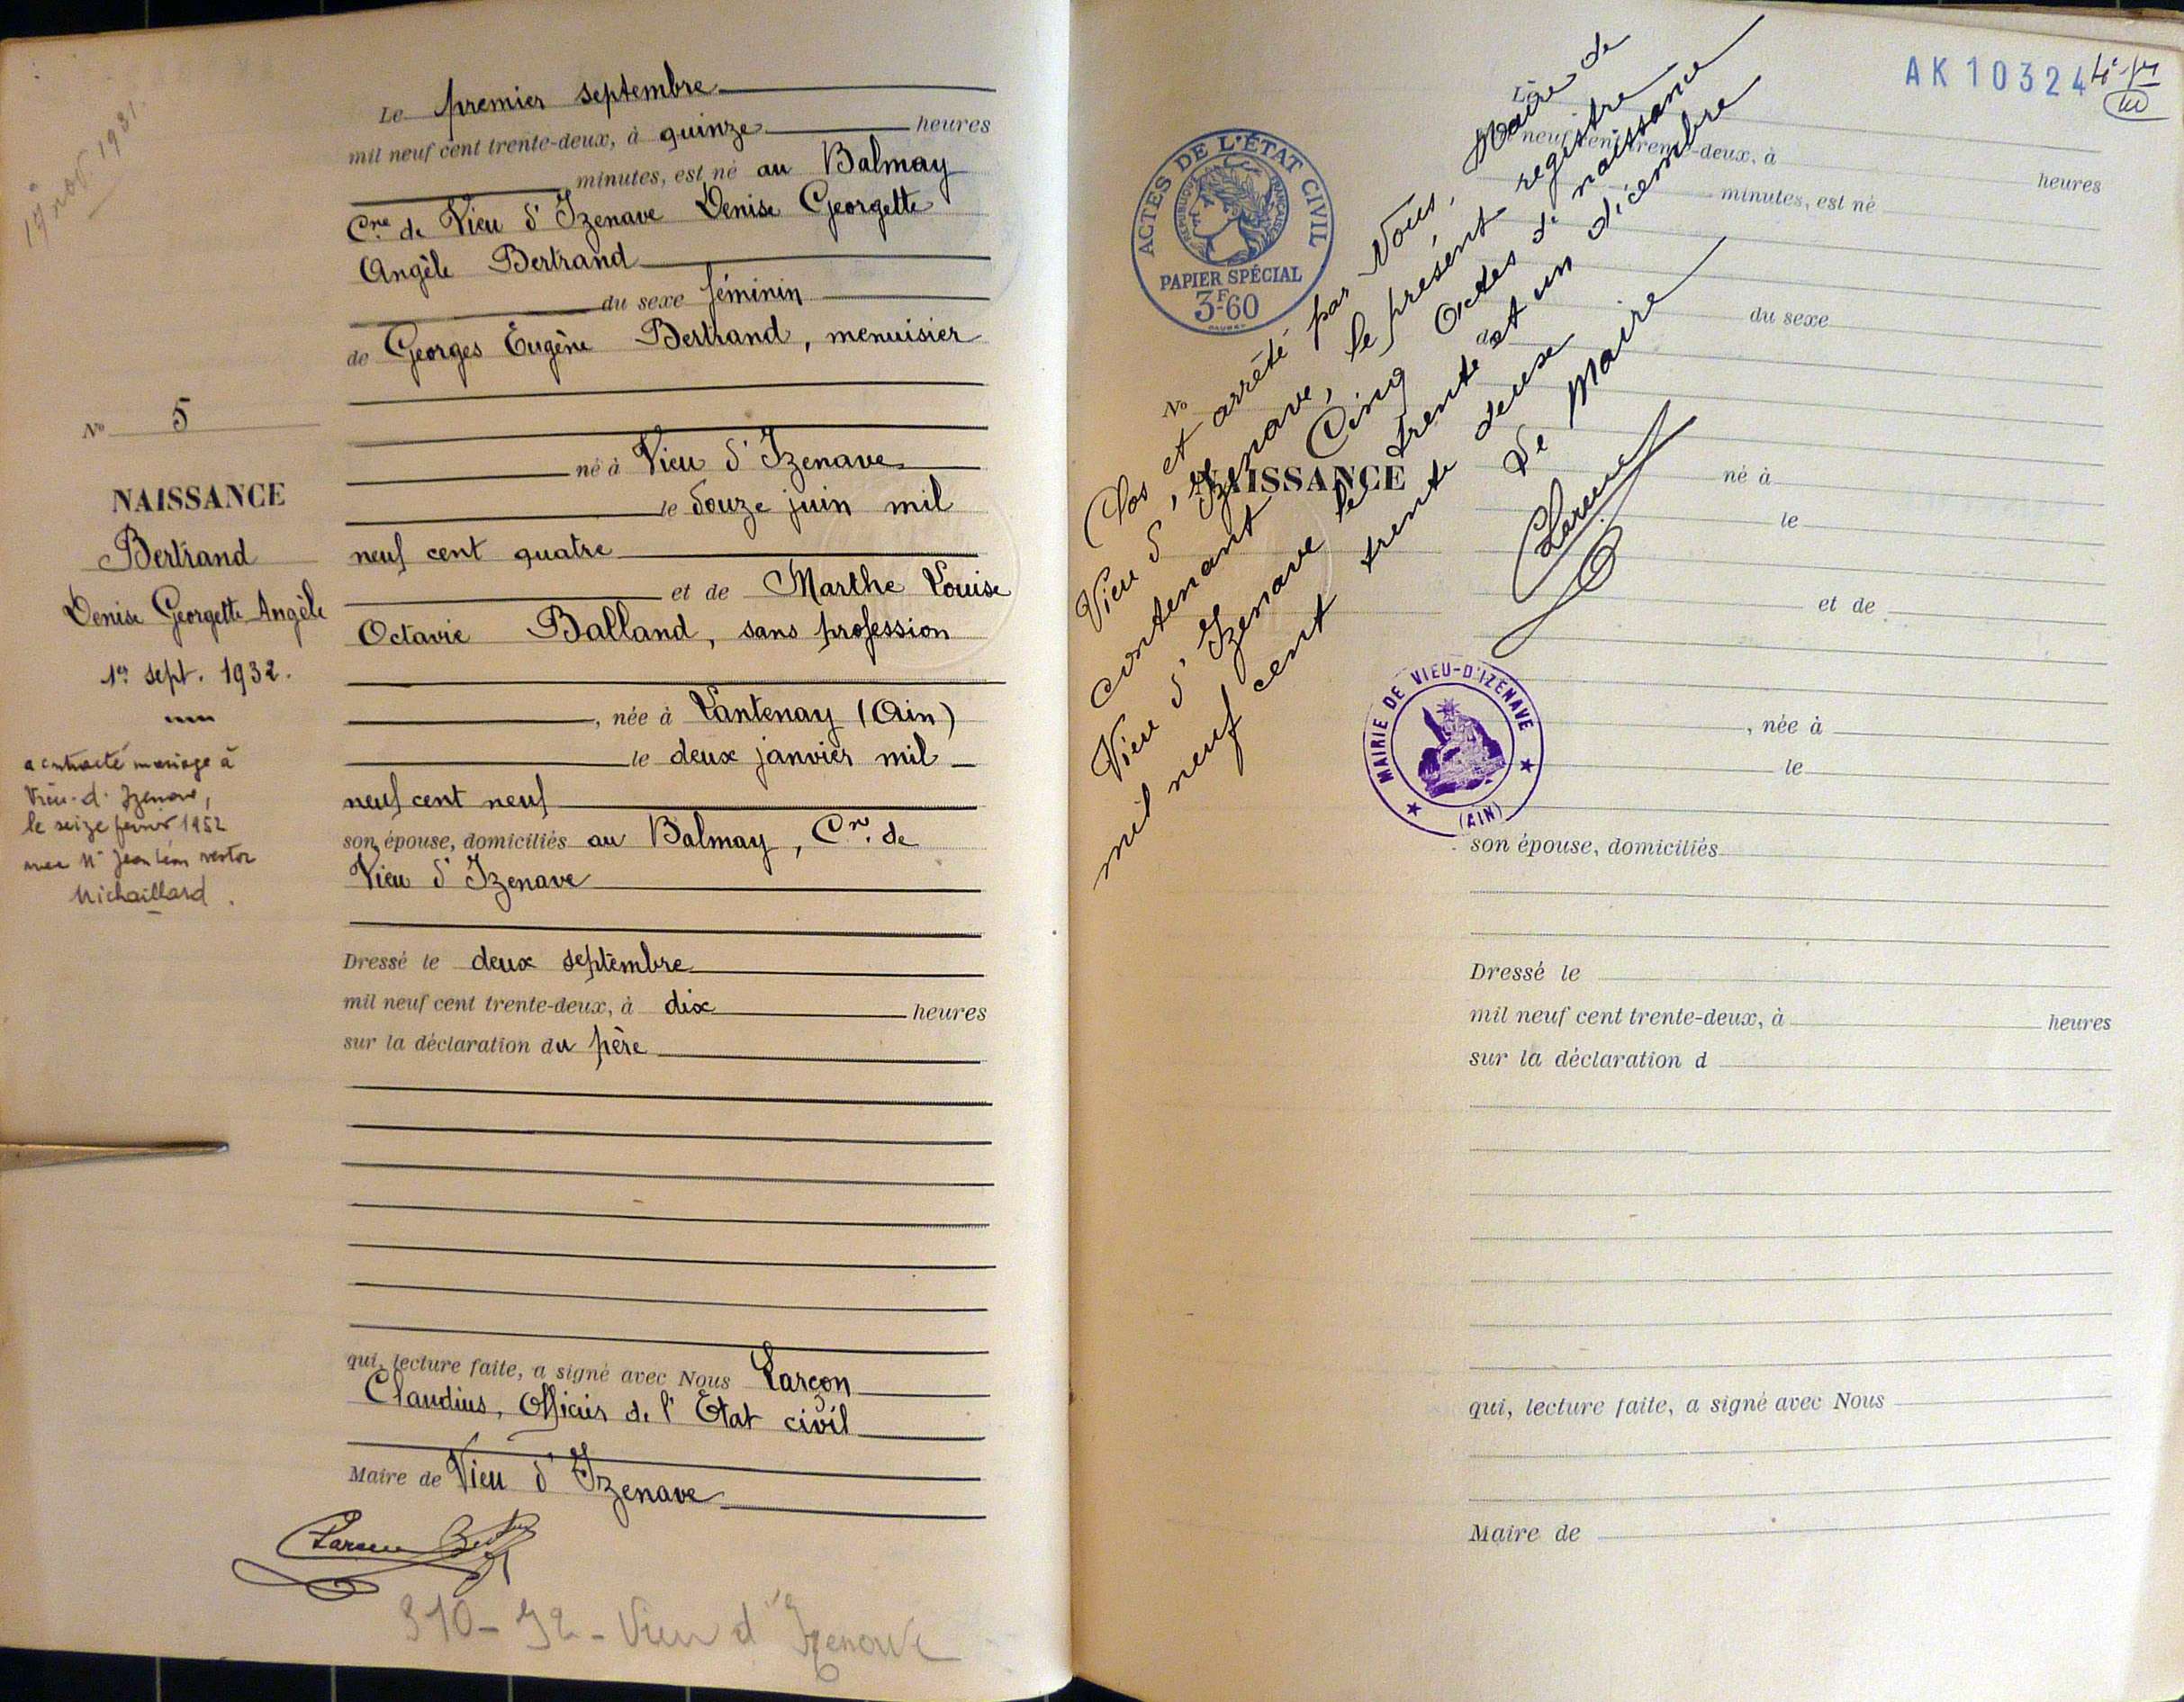 17 nov. 1931.
Le premier septembre
mil neuf cent trente-deux, à quinze heures
minutes, est né au Balmay
Cne de Vieu d'Izenave Denise Georgette
Angèle Bertrand
du sexe féminin
de Georges Eugène Bertrand, menuisier
né à Vieu d'Izenave
le douze juin mil
neuf cent quatre
et de Marthe Louise
Octavie Balland, sans profession
, née à Lantenay (Ain)
le deux janvier mil
neuf cent neuf
son épouse, domiciliés au Balmay, Cne de
Vieu d'Izenave
Dressé le deux septembre
mil neuf cent trente-deux, à dix heures
sur la déclaration du père
qui, lecture faite, a signé avec Nous Larçon
Claudius, Officier de l'Etat civil
Maire de Vieu d'Izenave
310 - 32 - Vieu d'Izenave
No 5
NAISSANCE
Bertrand
Denise Georgette Angèle
1er sept. 1932.
a contracté mariage à
Vieu-d'Izenave,
le seize février 1952
avec Mr Jean Léon Nestor
Michaillard.
AK10324
ACTES DE L'ÉTAT CIVIL
RÉPUBLIQUE FRANÇAISE
PAPIER SPÉCIAL
3F60
Clos et arrêté par Nous, Maire de
Vieu d'Izenave, le présent registre
contenant Cinq Actes de naissance
Vieu d'Izenave le trente et un décembre
mil neuf cent trente deux
Le Maire
MAIRIE DE VIEU-D'IZENAVE
(AIN)
Le
neuf cent trente-deux, à
heures
minutes, est né
du sexe
de
No
NAISSANCE
né à
le
et de
, née à
le
son épouse, domiciliés
Dressé le
mil neuf cent trente-deux, à heures
sur la déclaration d
qui, lecture faite, a signé avec Nous
Maire de